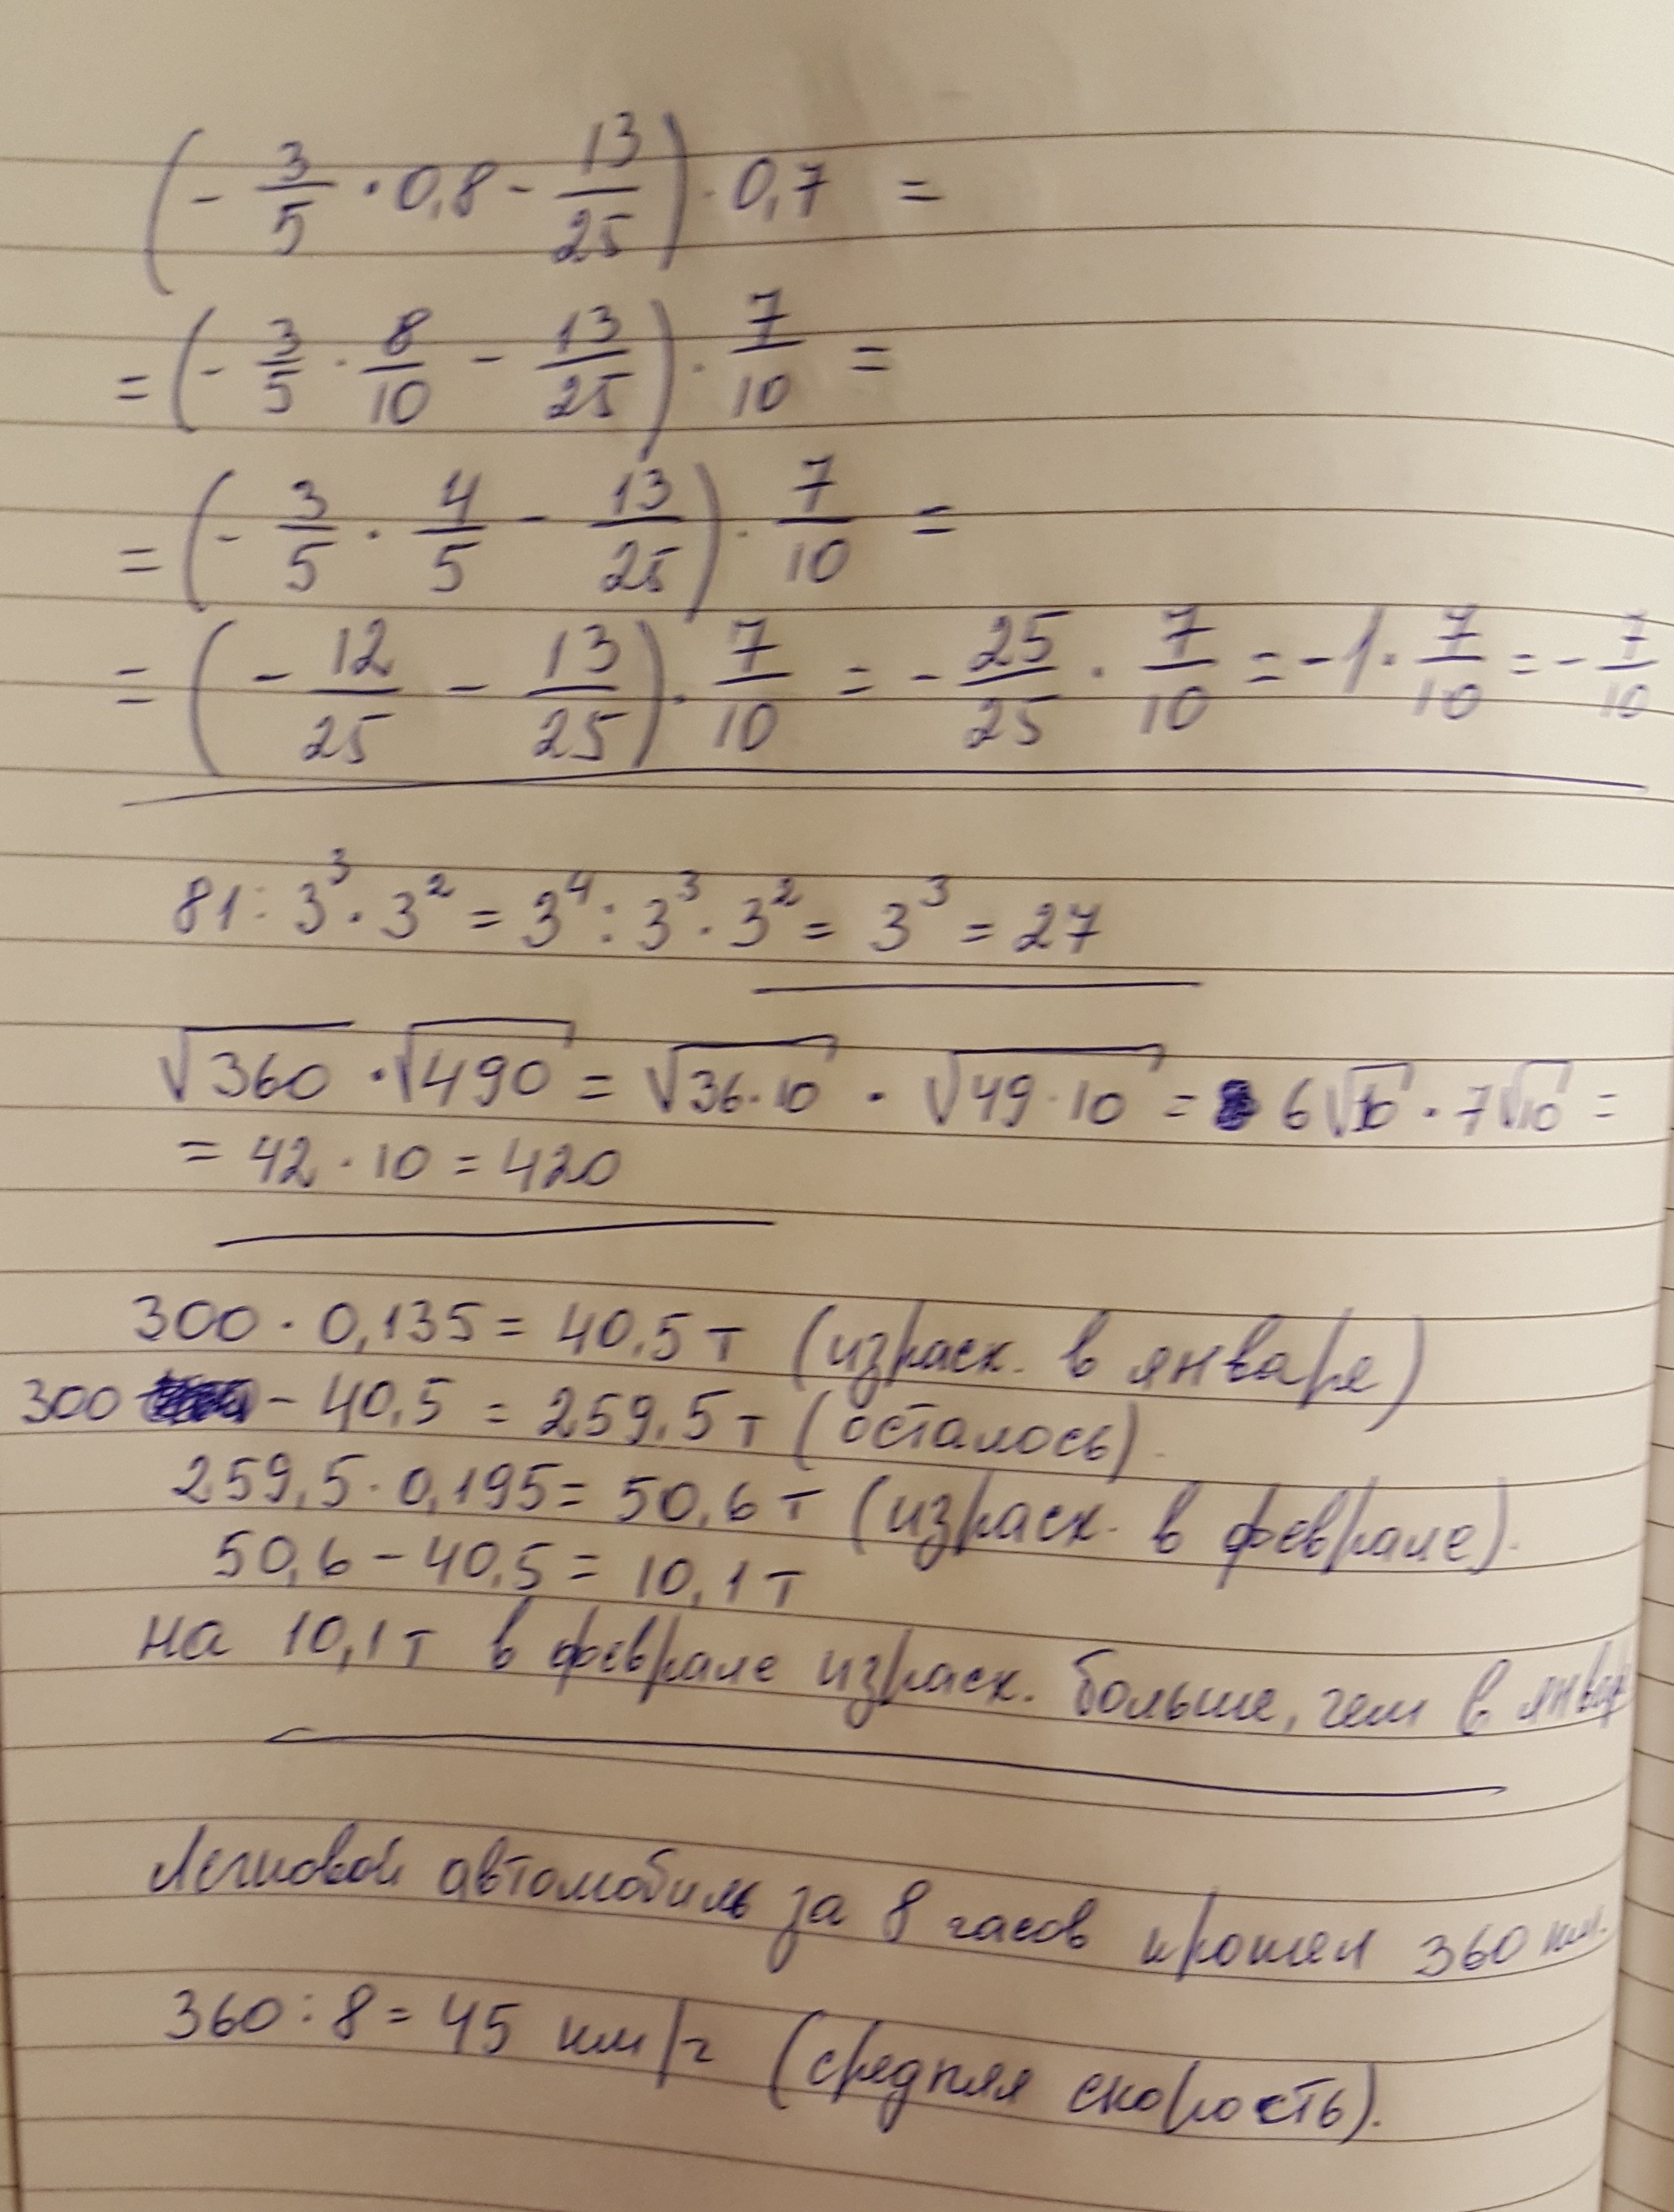 (- 3/5 · 0,8 - 13/25) · 0,7 =
= (- 3/5 · 8/10 - 13/25) · 7/10 =
= (- 3/5 · 4/5 - 13/25) · 7/10 =
= (- 12/25 - 13/25) · 7/10 = - 25/25 · 7/10 = -1 · 7/10 = - 7/10
81 : 3³ · 3² = 3⁴ : 3³ · 3² = 3³ = 27
√360 · √490 = √36·10 · √49·10 = 6√10 · 7√10 =
= 42 · 10 = 420
300 · 0,135 = 40,5 т (израсх. в январе)
300 - 40,5 = 259,5 т (осталось).
259,5 · 0,195 = 50,6 т (израсх. в феврале).
50,6 - 40,5 = 10,1 т
на 10,1 т в феврале израсх. больше, чем в январ
Легковой автомобиль за 8 часов прошел 360 км.
360 : 8 = 45 км/ч (средняя скорость).